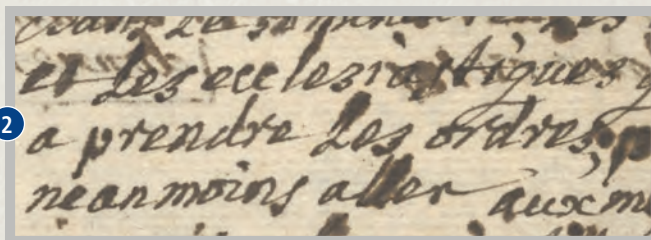 et les eccleziastiques
2
a prendre les ordres,
neanmoins aller aux